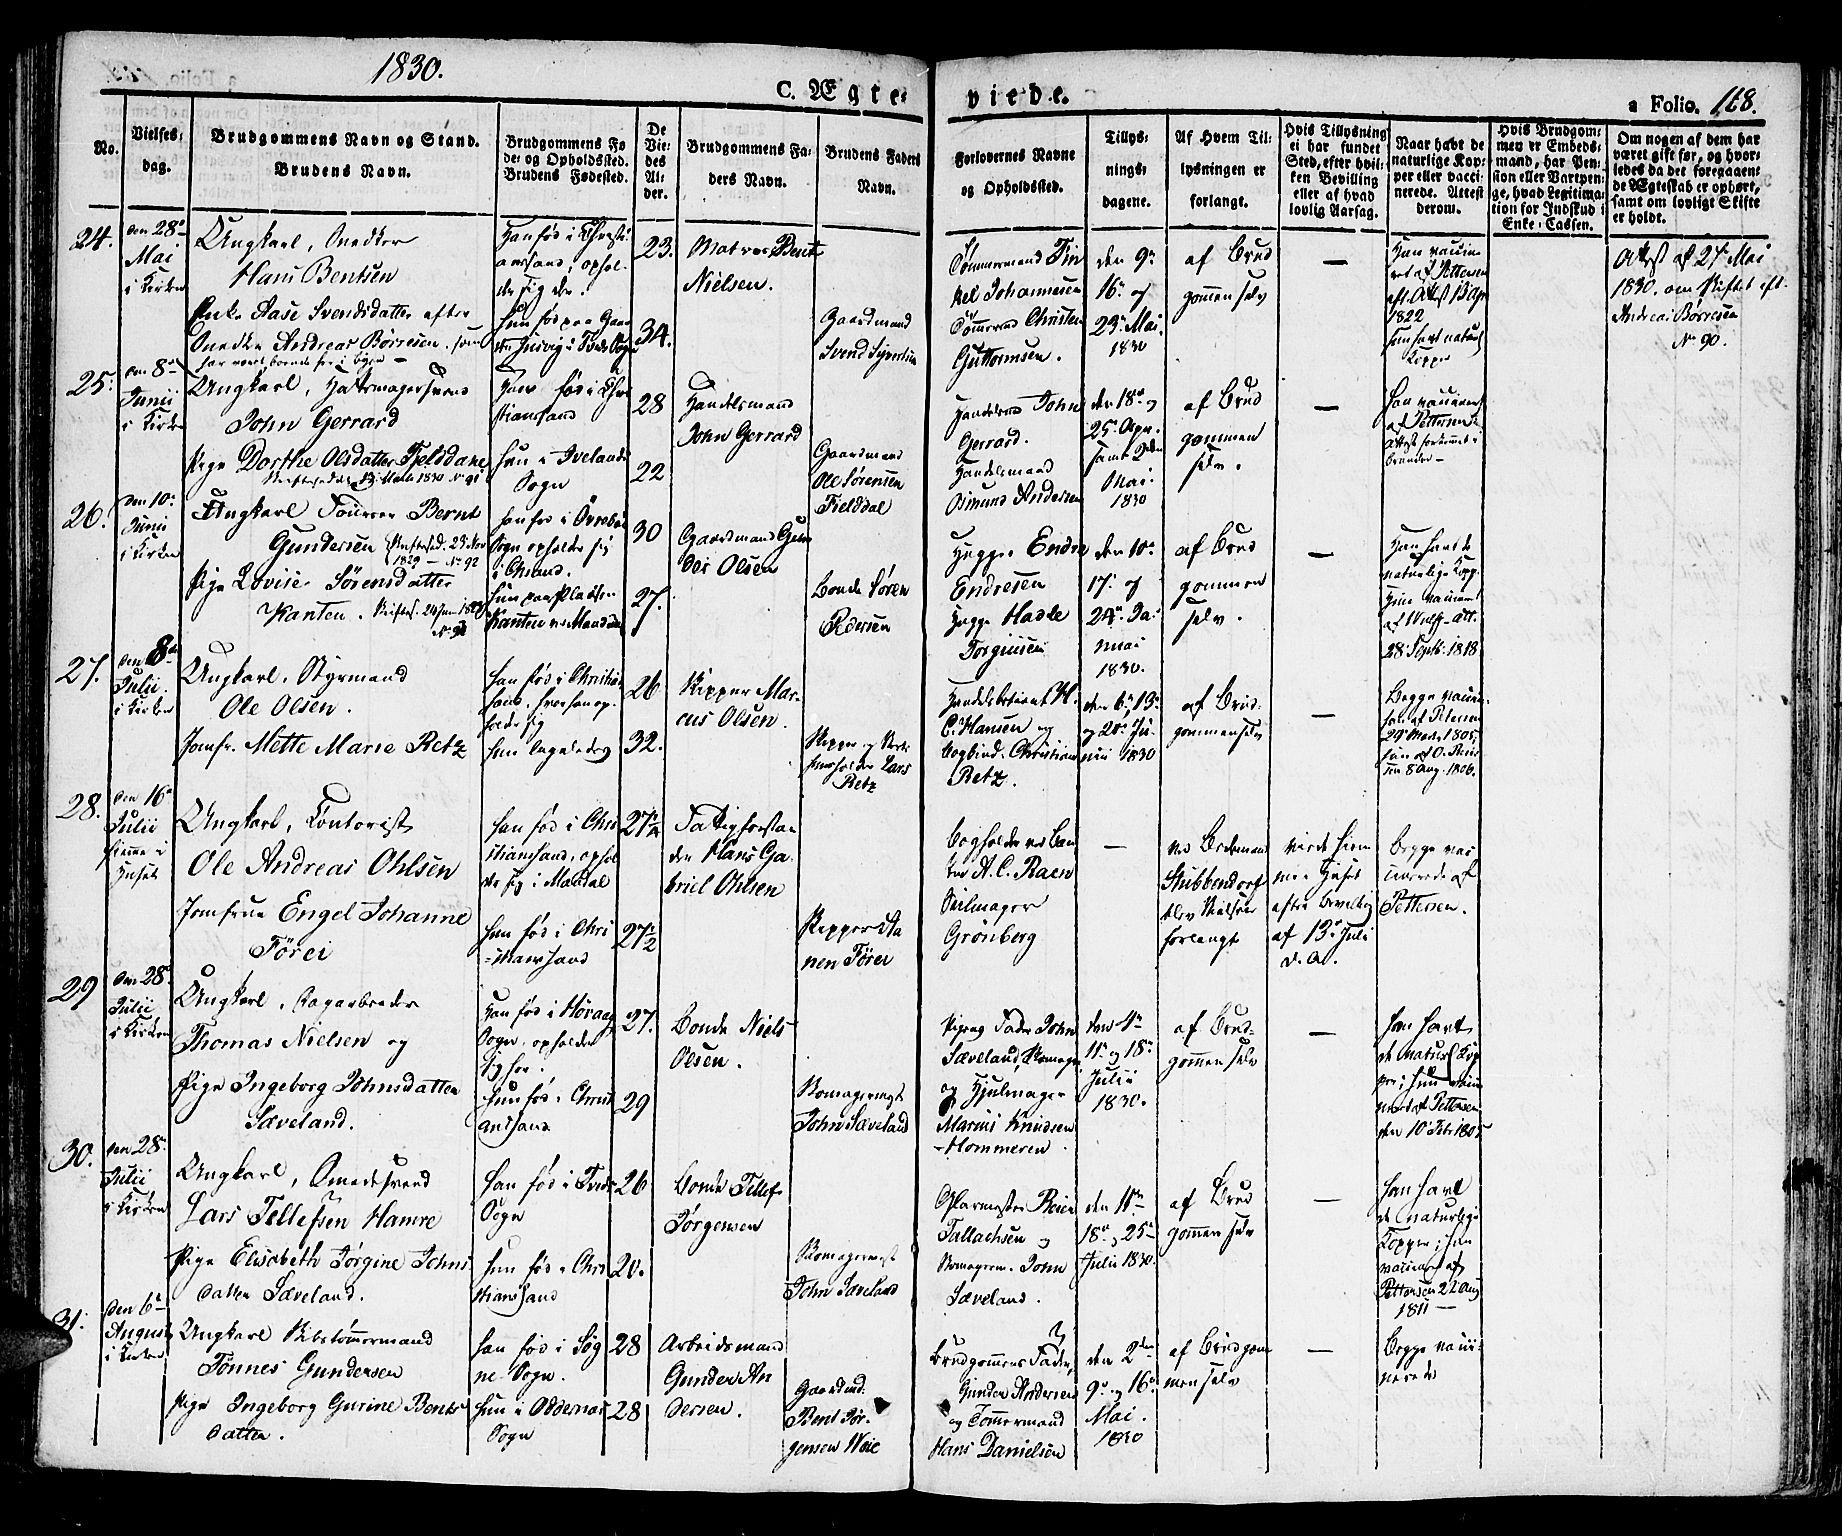 1830.
C. Ægte-
viede.
a Folio. 168.
No.
Vielses-
dag.
Brudgommens Navn og Stand.
Brudens Navn.
Brudgommens Fø
de- og Opholdssted.
Brudens Fødested.
De
Vie-
des
Al-
der.
Brudgommens Fa-
ders Navn.
Brudens Faders
Navn.
Forlovernes Navne
og Opholdssted.
Tillys-
nings-
dagene.
Af Hvem Til-
lysningen er
forlangt.
Hvis Tillysning
ei har fundet
Sted, efter hvil-
ken Bevilling
eller af hvad
lovlig Aarsag.
Naar havt de
naturlige Kop-
per eller vacci-
nerede. Attest
derom.
Hvis Brudgom-
men er Embeds-
mand, har Pen-
sion eller Vartpen-
ge, hvad Legitima-
tion for Indskud i
Enke-Cassen.
Om nogen af dem har
været gift før, og hvor-
ledes da det foregaaen-
de Ægteskab er ophørt,
samt om lovligt Skifte
er holdt.
24.
den 28de
Mai
i Kirken
Ungkarl, Snedker
Hans Bentsen
Enke Aase Svendsdatter efter
Snedker Andreas Børresen, som
har været boende her i byen
Han fød i Christi
ansand, ophol-
der sig der.
Hun fød paa Gaar
den Justvig i Tveds Sogn
23.
34.
Matros Bent
Nielsen.
Gaardmand
Svend Sivertsen
Tømmermand Tin
kel Johannesen
Tømmermd Christen
Guttormsen.
den 9de
16de og
23de Mai
1830
af Brud
gommen selv
—
Han vaccine
ret af Pettersen
eft. Attest 15 Apr
1822
Hun havt naturl
Kopper
Attest af 27 Mai
1830. om Skiftet eft.
Andreas Børresen
No 90.
25.
den 8de
Junii
i Kirken
Ungkarl, Hattemagersvend
John Gerrard
Pige Dorthe Olsdatter Fjelsdane
Skiftesedel 13 Marts 1830 No 91
Han fød i Chri
stiansand
Hun i Ivelands
Sogn
28
22
Handelsmand
John Gerrard
Gaardmand
Ole Sørensen
Fjelddal
Handelsmd John
Gerrard.
Handelsmand
Osmund Andersen
den 18de og
25de Apr.
samt 2den
Mai.
1830
af Brud
gommen
selv.
—
Han vaccineret
af Pettersen
26.
den 10de
Junii
i Kirken
Ungkarl Tourer Bernt
Gundersen Skiftesed. 23 Nov
1829 — No 92
Pige Lovise Sørensdatter
Kanten. Skiftes. 24 Jan 1829
No 93
Han fød i Øvrebø
Sogn opholder sig
i Chsand.
Hun paa Pladsen
Kanten ved Mandal
30
27.
Gaardmand Gun
der Olsen
Bonde Søren
Pedersen
Hugger Endre
Endresen
Hugger Hadle
Torgiusen
den 10de
17de og
24de Ja-
nuai
1830.
af Brud
gommen
selv.
—
Han havt de
naturlige Kopp.
Hun vaccin
af Wulfs. att.
28 Septb. 1818
27.
den 8de
Julii.
i Kirken
Ungkarl, Styrmand
Ole Olsen.
Jomfr. Mette Marie Retz
Han fød i Christian
sand, hvor han op-
holder sig
Hun ligeledes
26
32.
Skipper Mar-
cus Olsen.
Skipper og Værts
huusholder Lars
Retz
Handelsbetient H.
C. Hansen og
Bogbind. Christian
Retz.
den 6te, 13de
og 20de Ju-
nii 1830
af Brud-
gommen selv
—
Begge vaccin.
han af Petersen
29 Marts 1805,
hun af O. Bie
sen 8 Aug. 1806.
28.
den 16de
Julii
hiemme i
Huset
Ungkarl, Contorist
Ole Andreas Ohlsen
Jomfrue Engel Johanne
Förei
Han fød i Chri
stiansand, ophol
der sig i Mandal
Hun fød i Chri
-stiansand
27½
27½
Fattigforstan
der Hans Ga-
briel Ohlsen
Skipper Sta
nen Förei
Bogholder ved Ban
ken A. C. Raen
Seilmager
Grönberg
—
ved Ordemand
Stubbendorf
blev Vielsen
forlangt
viede hiem
me i Huset
efter Bevilling
af 13de Juli
d. A.
Begge vac
cinerede af
Pettersen.
29
den 28de
Julii
i Kirken
Ungkarl, Sagarbeider
Thomas Nielsen og
Pige Ingeborg Johnsdatter
Sæveland.
Han fød i Høvaag
Sogn, opholder
sig her.
Hun fød i Christi
ansand
27.
29
Bonde Niels
Olsen.
Skomagermest
John Sæveland
Pigens Fader John
Sæveland, Skomager,
og Hjulmager
Marius Knudsen
-Hommeren.
den 4de
11te og 18de
Julii
1830.
af Brud-
gommen selv
—
Han havt
de naturl. Kop
per; hun vacci
neret af Pettersen
den 10 Febr 1805
30.
den 28de
Julii
i Kirken
Ungkarl, Smedesvend
Lars Tellefsen Hamre
Pige Elisabeth Jørgine Johns
datter Sæveland.
Han fød i Tveds
Sogn
Hun fød i Chri
stiansand
26
20.
Bonde Tellef
Jørgensen
Skomagermest
John Sæveland
Glarmester Reier
Tallachsen og
Skomagerm. John
Sæveland.
den 11te
18de og 25de
Julii 1830.
af Brud
gommen selv
—
Han havt
de naturlige
Kopper; hun
vaccineret af
Pettersen 22 Aug
1811 —
31.
den 6te
August
i Kirken
Ungkarl Skibstømmermand
Tønnes Gundersen
Pige Ingeborg Gurine Bents
datter.
Han fød i Søg
ne Sogn.
Hun i Oddernæs
Sogn
28
28
Arbeidsmand
Gunder An
dersen.
Gaardmd.
Bent Jør-
gensen Weie
Brudgommens Fader,
Gunder Andersen
og Tømmermand
Hans Danielsen
den 2den
9de og 16de
Mai.
1830
af Brudgom
men selv
—
Begge vacci-
nerede